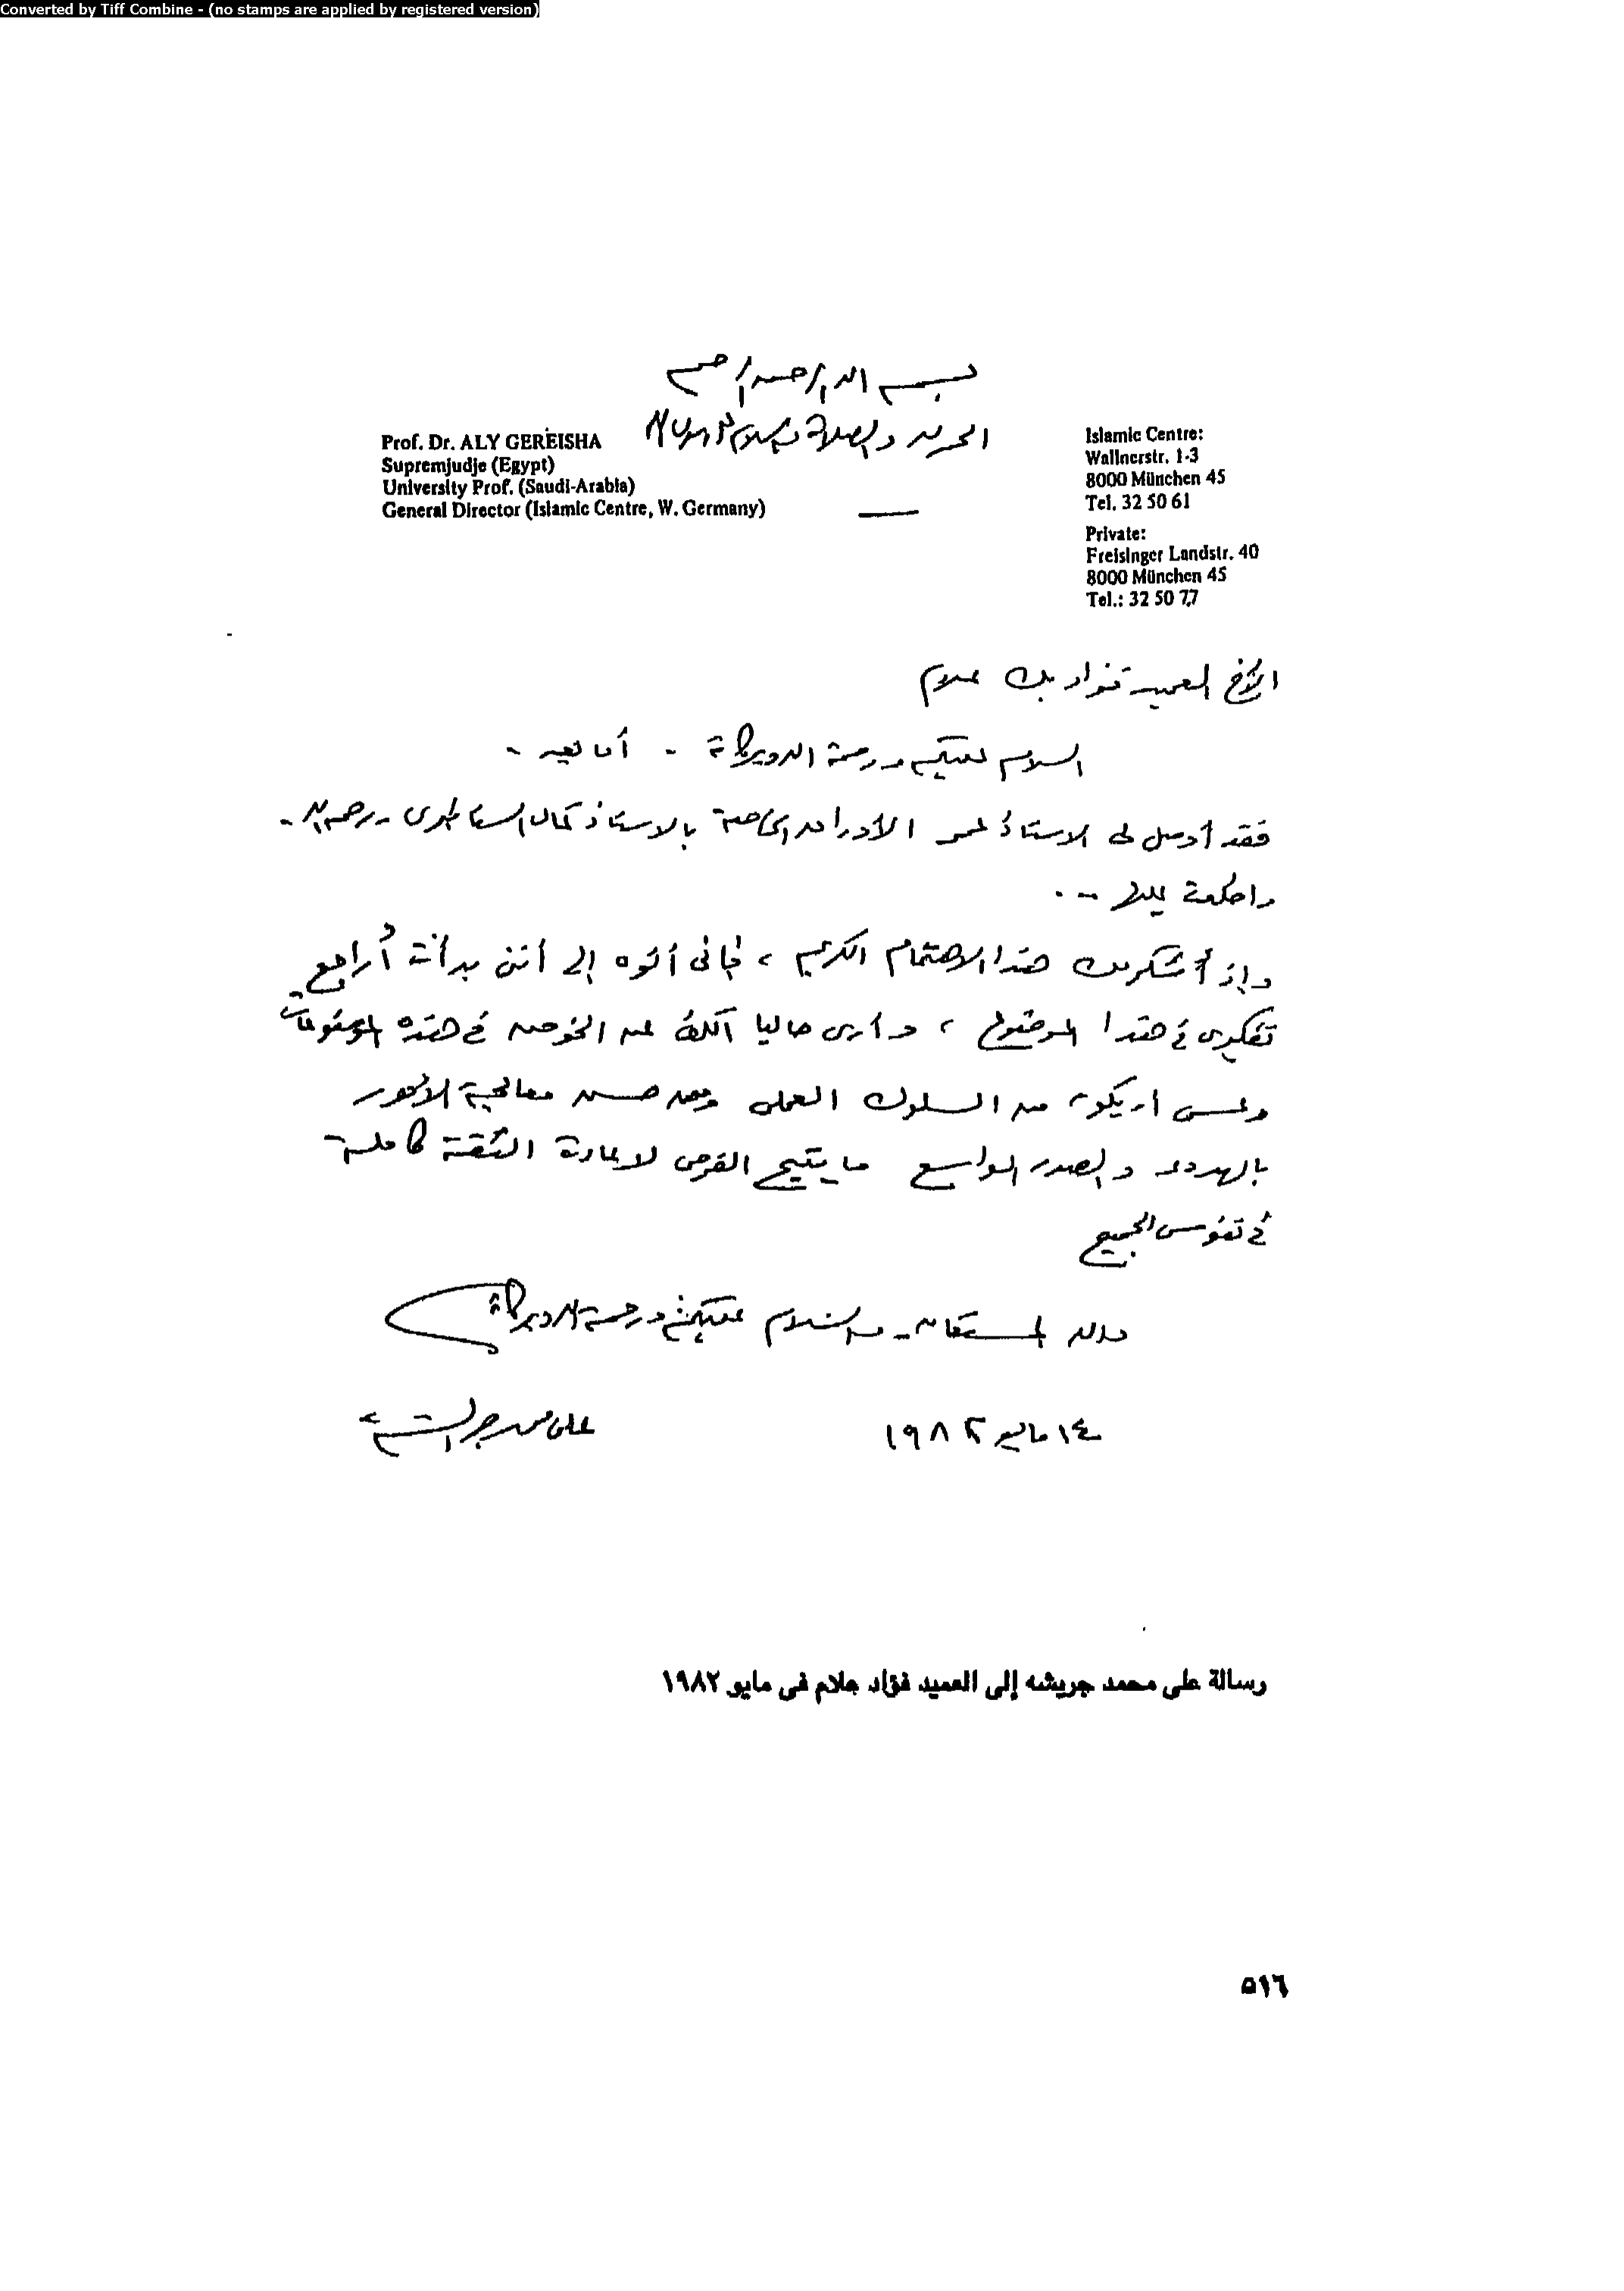 Converted by Tiff Combine - (no stamps are applied by registered version)
بسم الله الرحمن الرحيم
الحمد لله والصلاة والسلام على رسول الله
Prof. Dr. ALY GEREISHA
Supremjudje (Egypt)
University Prof. (Saudi-Arabia)
General Director (Islamic Centre, W. Germany)
Islamic Centre:
Wallnerstr. 1-3
8000 München 45
Tel. 32 50 61
Private:
Freisinger Landstr. 40
8000 München 45
Tel.: 32 50 77
الأخ العميد فؤاد بك علام
السلام عليكم ورحمة الله وبركاته - أما بعد -
فقد أوصل لى الاستاذ عمر الأوراق الخاصة بالاستاذ كمال السنانيرى - رحمه الله -
وإذ أشكر لك هذا الاهتمام الكريم ، فإنى أنوه إلى أننى بدأت أراجع
تفكيرى فى هذا الموضوع ، وأرى حاليا الكف عن الخوض فى هذه الموضوعات
وعسى أن يكون من السلوك العملى ومن حسن معالجة الأمور
بالهدوء والصدر الواسع ما يتيح الفرص لإعادة الثقة كاملة
فى نفوس الجميع
والله المستعان - والسلام عليكم ورحمة الله وبركاته
١٤ مايو ١٩٨٢
على محمد جريشة
رسالة على محمد جريشه إلى العميد فؤاد علام فى مايو ١٩٨٢
٥١٦